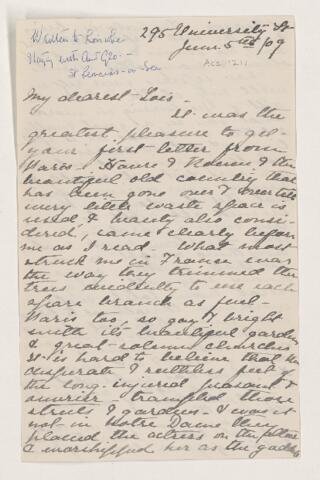 Written to Lois while
Staying with Aunt Geo. -
St Leonards-on-Sea
295 University St
June 5th /09
ACC 1211
My dearest Lois -
It was the
greatest pleasure to get
your first letter from
Paris - Havre & Rouen & the
beautiful old country that
has been gone over &
every little waste space is
used & beauty also consi-
dered, came clearly before
me as I read. What most
struck me in France was
the way they trimmed the
trees evidently to use each
spare branch as fuel -
Paris too, so gay & bright
with its beautiful gardens
& great solemn churches
It is hard to believe that the
desperate & ruthless feet of
the long-injured peasant &
ouvrier trampled those
streets & gardens - & was it
not in Notre Dame they
placed the actress on the altar
& worshipped her as the goddess